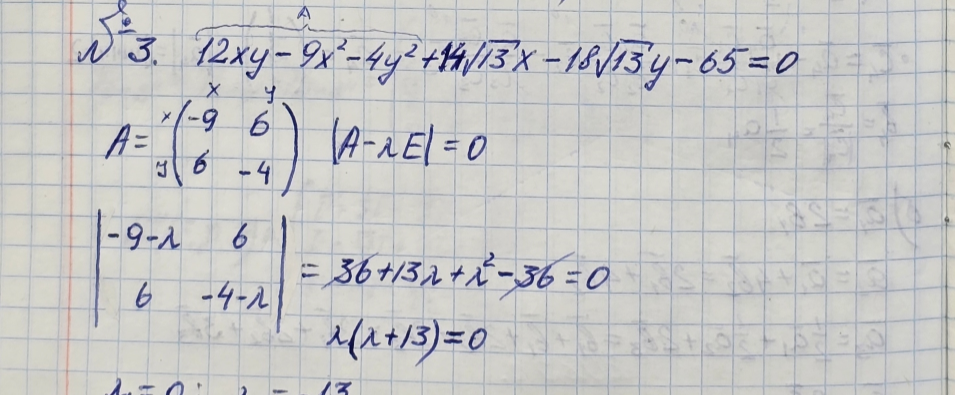 A
№ 3. 12xy - 9x² - 4y² + 14√13x - 18√13y - 65 = 0
x y
A = x (-9 6
y 6 -4) |A - λE| = 0
|-9-λ 6
6 -4-λ| = 36 + 13λ + λ² - 36 = 0
λ(λ + 13) = 0